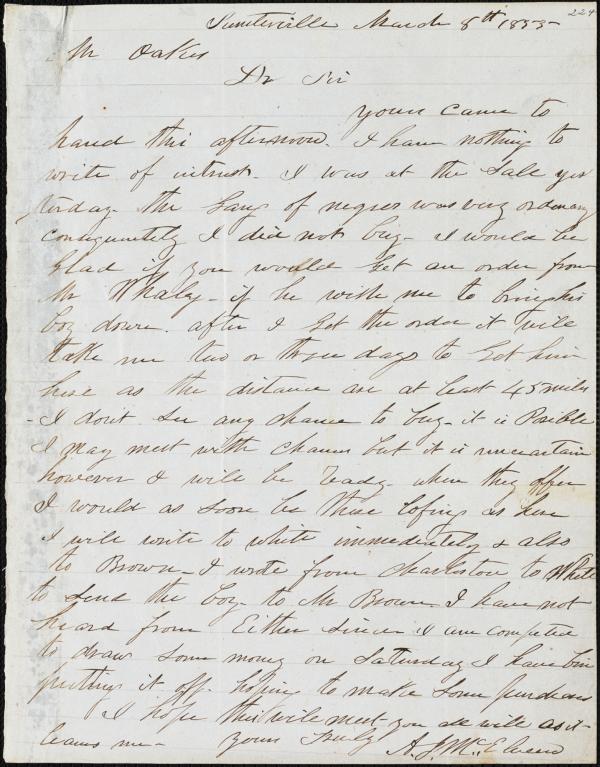 224
Sumterville March 8th 1853-
Mr Oakes
Dr Sir
yours came to
hand this afternoon. I have nothing to
write of intrest. I was at the Sale yes
terday. the Gang of negroes was very ordinary
consequntely I did not buy. I would be
Glad if you would Get an order from
Mr Whaley. if he wish me to bring his
boy down. after I Get the order it will
take me two or three days to Get him
here as the distance are at least 45 miles
- I dont see any chance to buy. it is Posible
I may meet with chances but it is uncertain
however I will be ready when they offer
I would as soon be there lofing as here
I will write to white immediately & also
to Brown. I wrote from charleston to White
to send the boy to Mr Brown. I have not
heard from Either since. I am compelled
to draw some money on Saturday I have bin
putting it off hoping to make some purchases
I hope this will meet you all well as it
leaves me- yours Truly A. J. McElveen